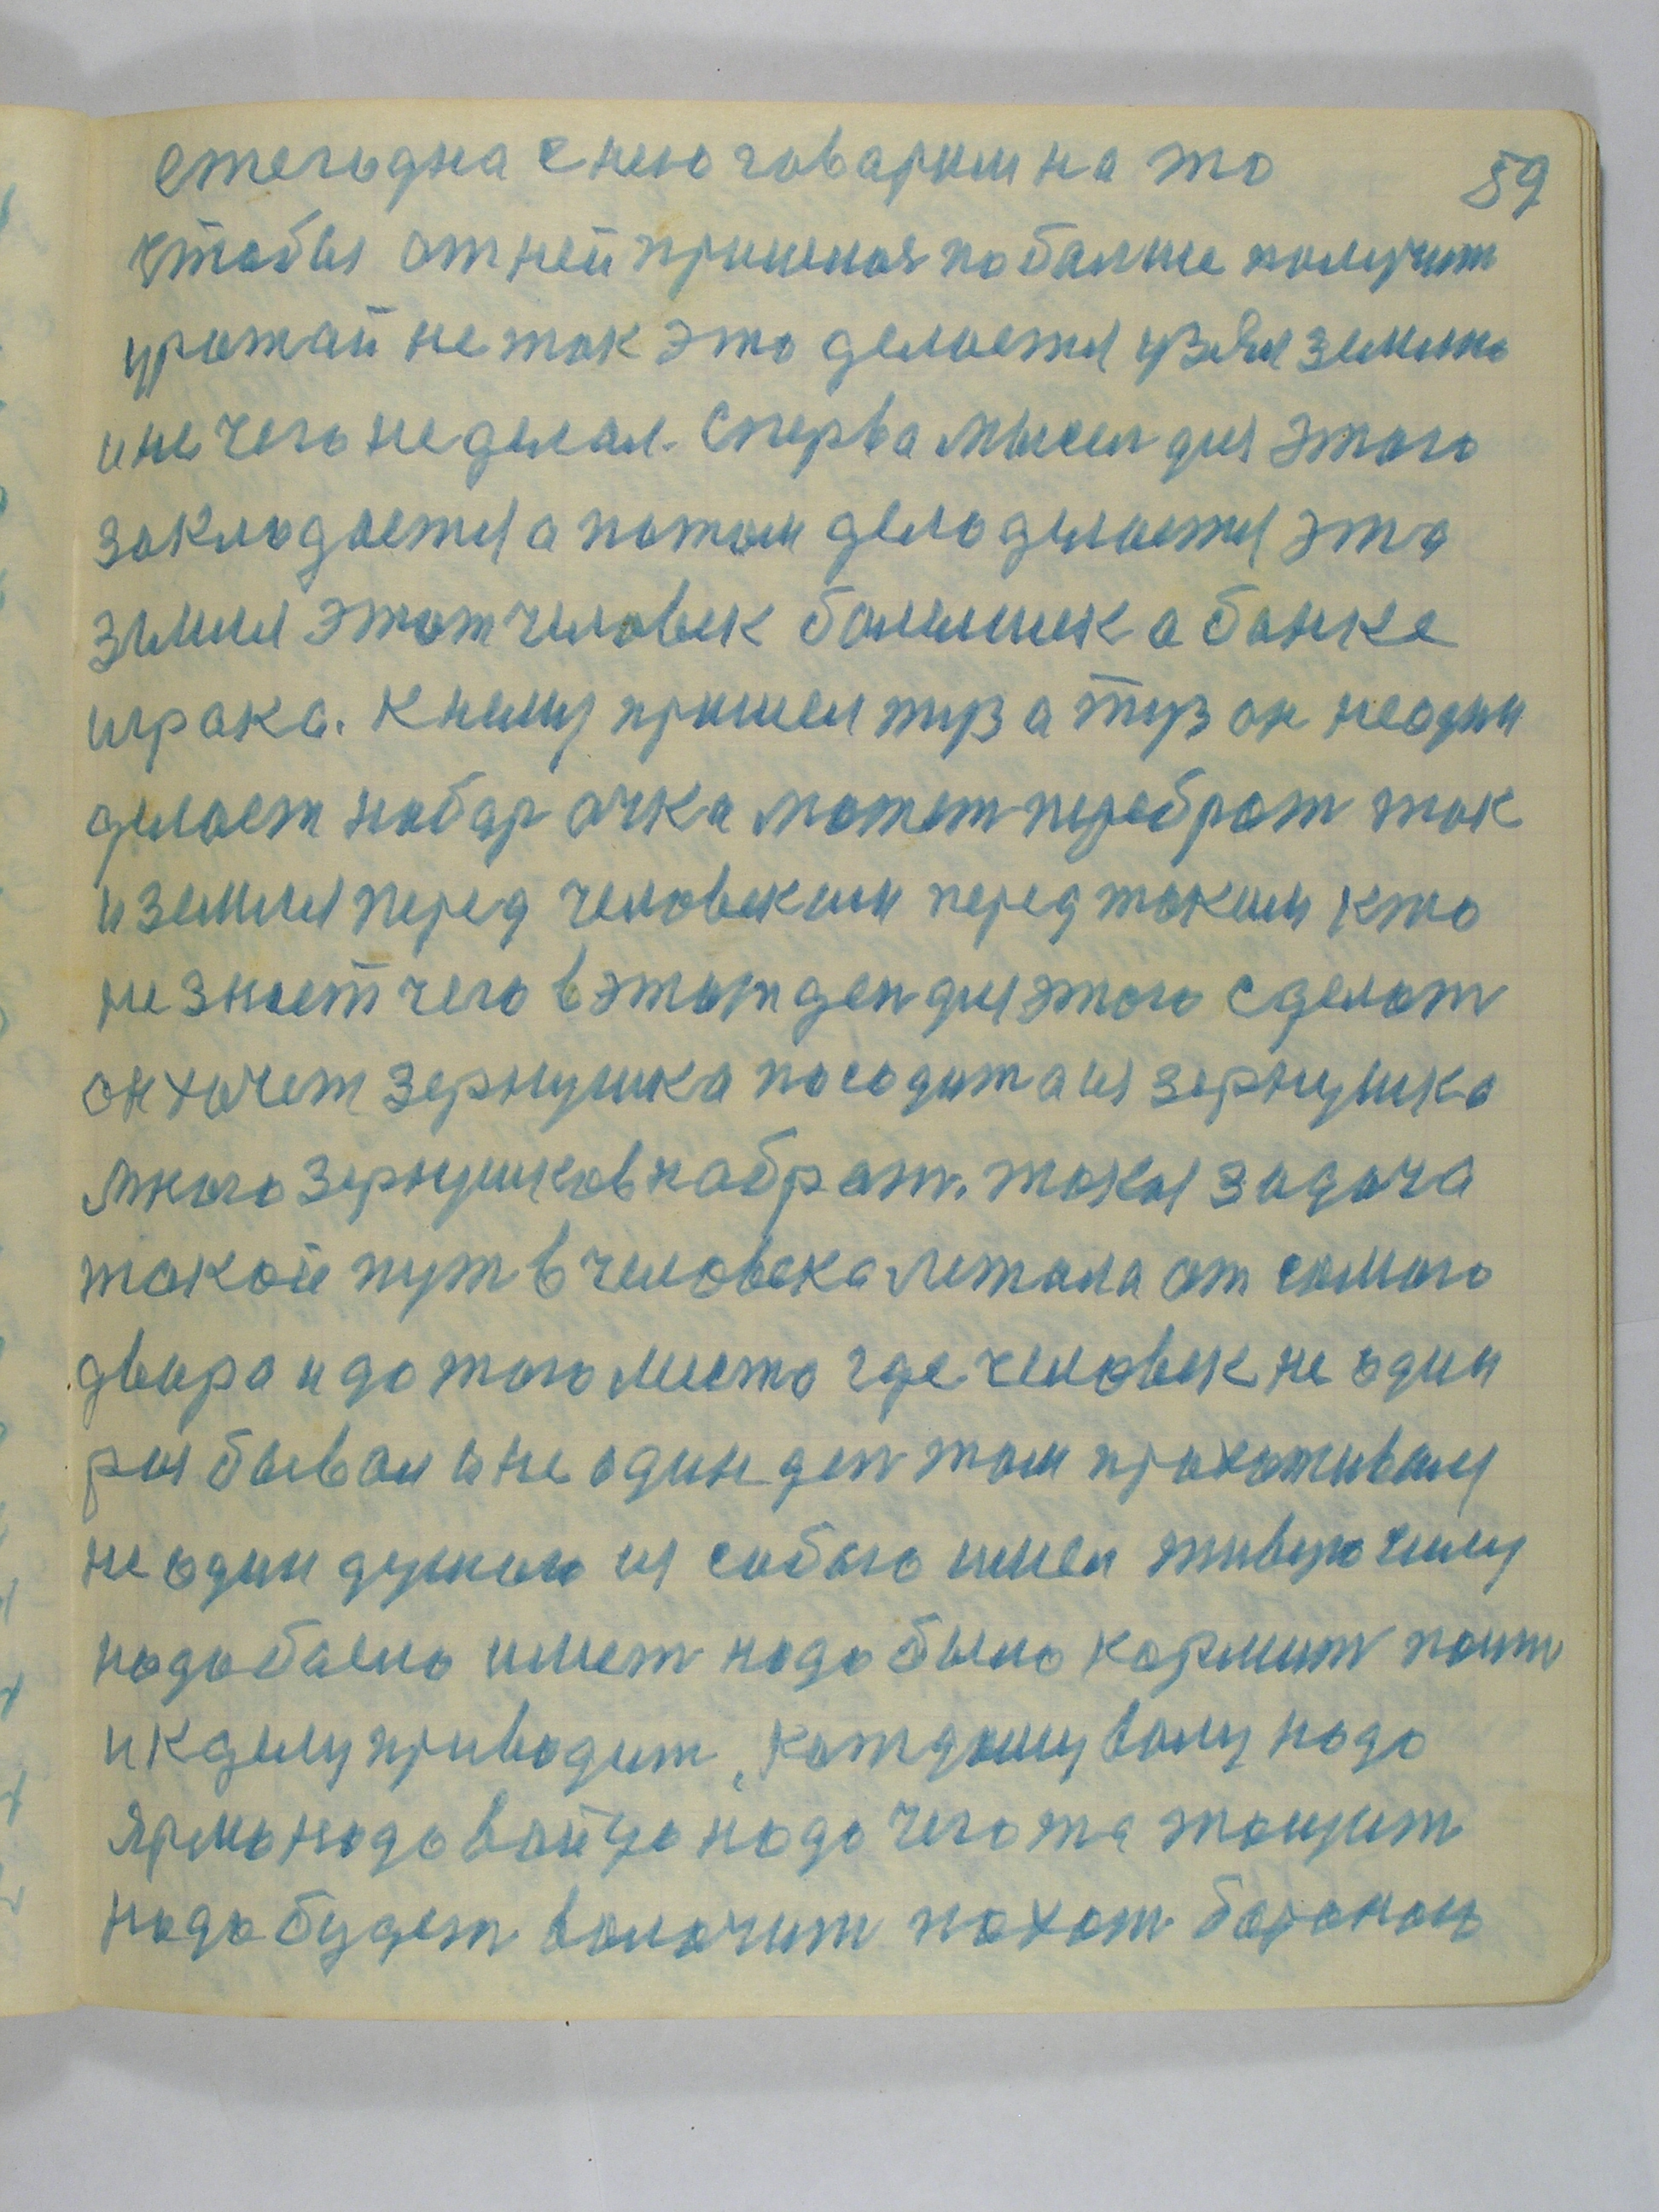 ежегодна с нею говарим на то 59
чтобы от ней пришлоя по балше получит
урожай не так это делается узял землю
и не чего не делал. Сперва мысел для этого
закладается а потом дело делается эта
земля этот человек болелшик а банке
играка. К нему пришел туз а туз он не один
делает набар очка может перебрат так
и земля перед человекам перед таким кто
не знает чего в этот ден для этого сделат
он хочет зернушка посодит а из зернушка
много зернушков набрат. такая задача
такой пут в человека лежала от самого
двара и до того места где человек не один
раз бывал и не один ден там прахаживал
не один думаю из собою имел живую силу
надо было имет надо было кормит поит
и к делу приводит, каждому валу надо
ярмо надо войцо надо чегожа тощит
надо будет валочит пахат бараноь